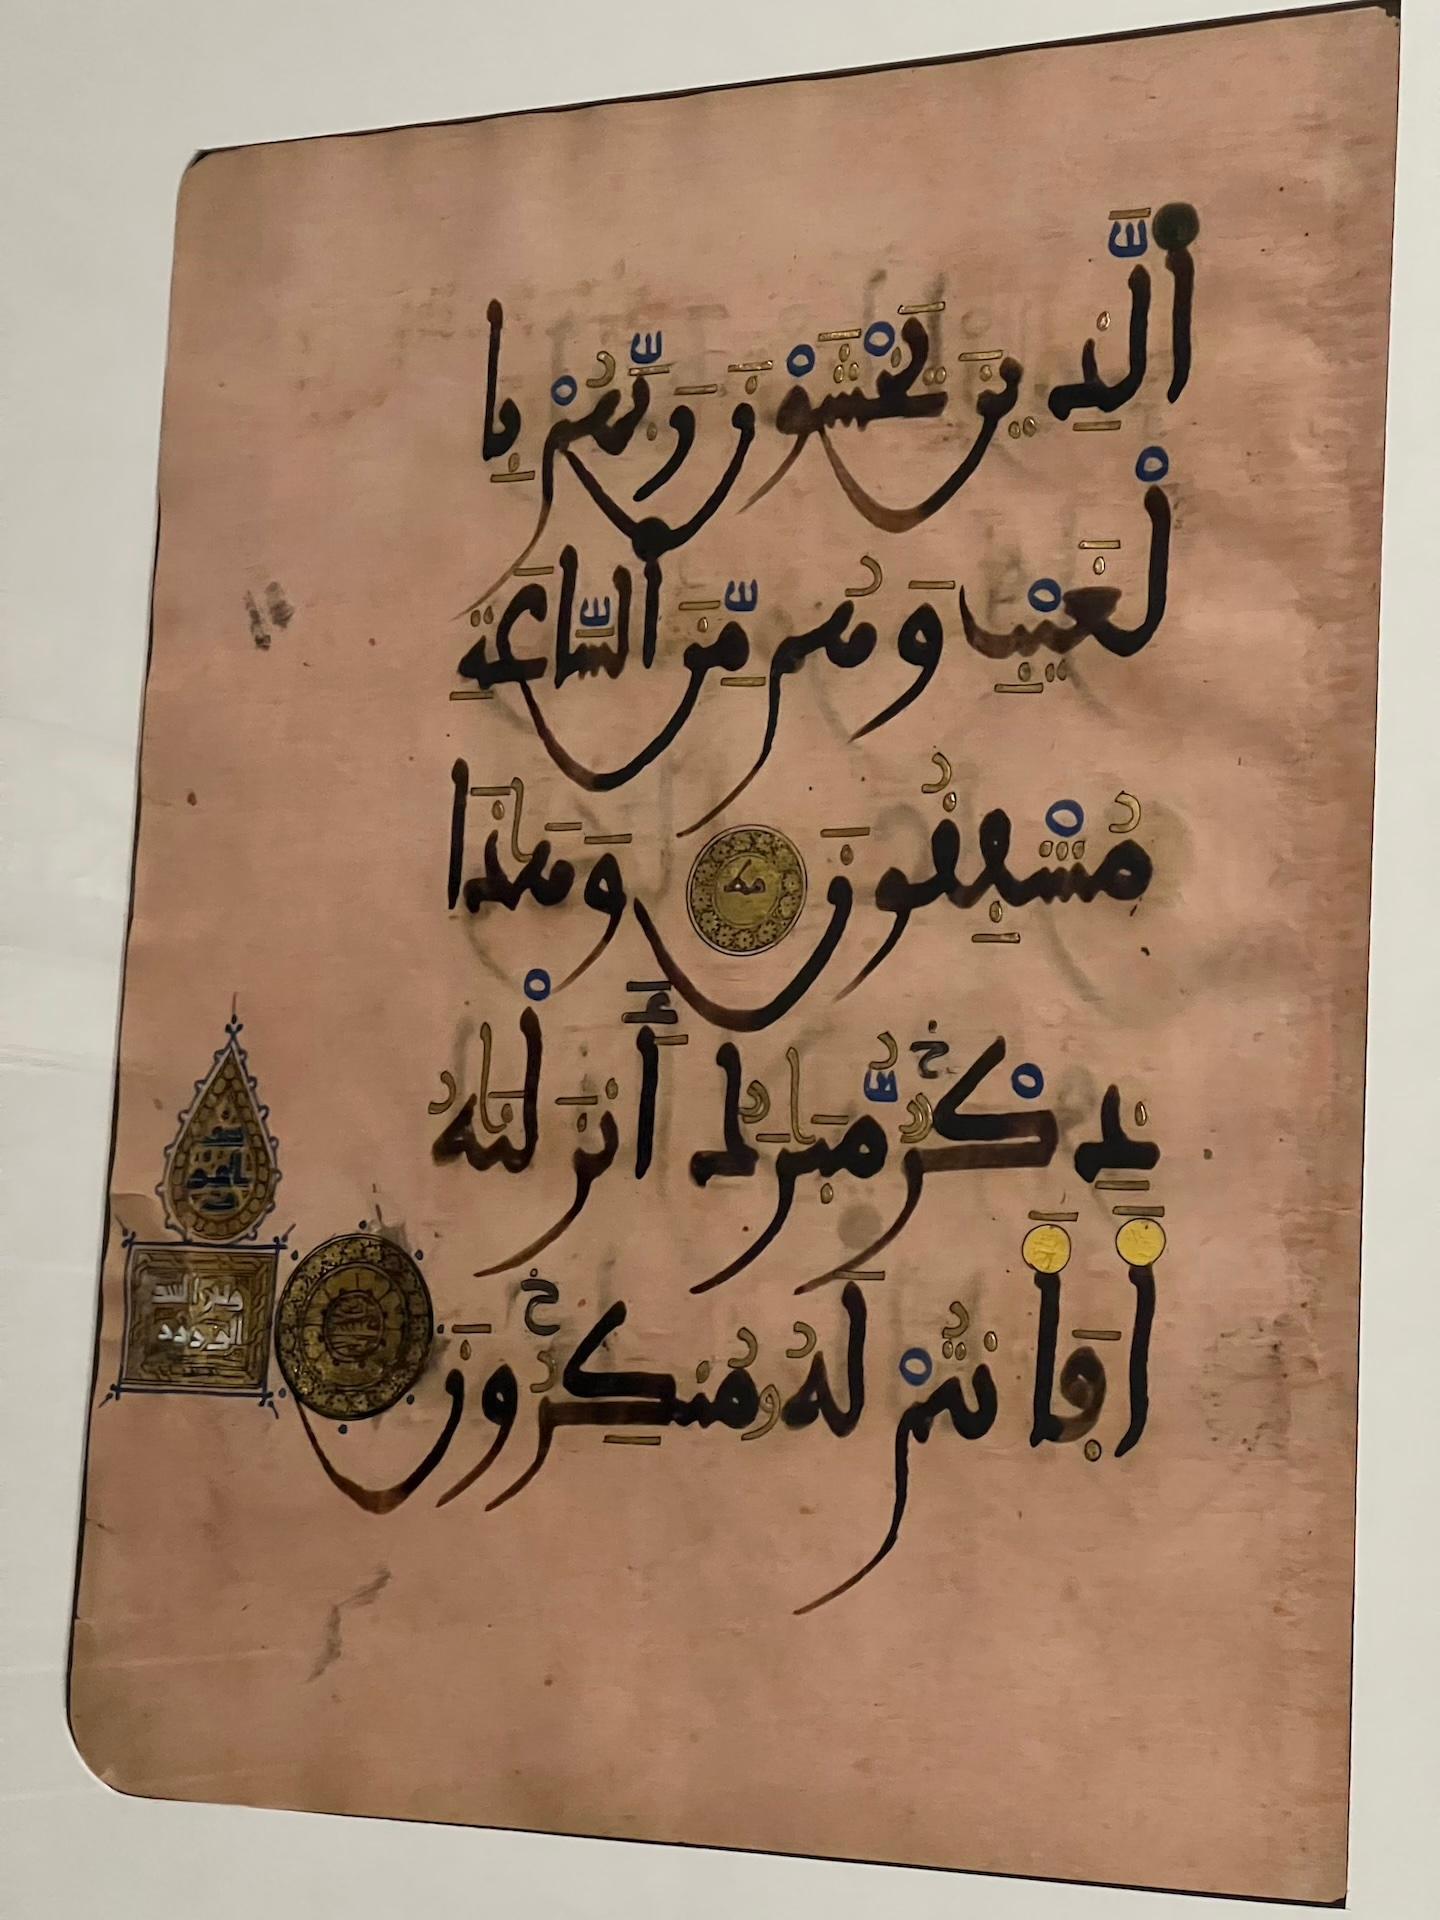 ٱلَّذِينَ يَخْشَوْنَ رَبَّهُمْ بِا
لْغَيْبِ وَهُم مِّنَ ٱلسَّاعَةِ
مُشْفِقُونَ وَهَٰذَا
ذِكْرٌ مُّبَٰرَكٌ أَنزَلْنَٰهُ
أَفَأَنتُمْ لَهُۥ مُنكِرُونَ